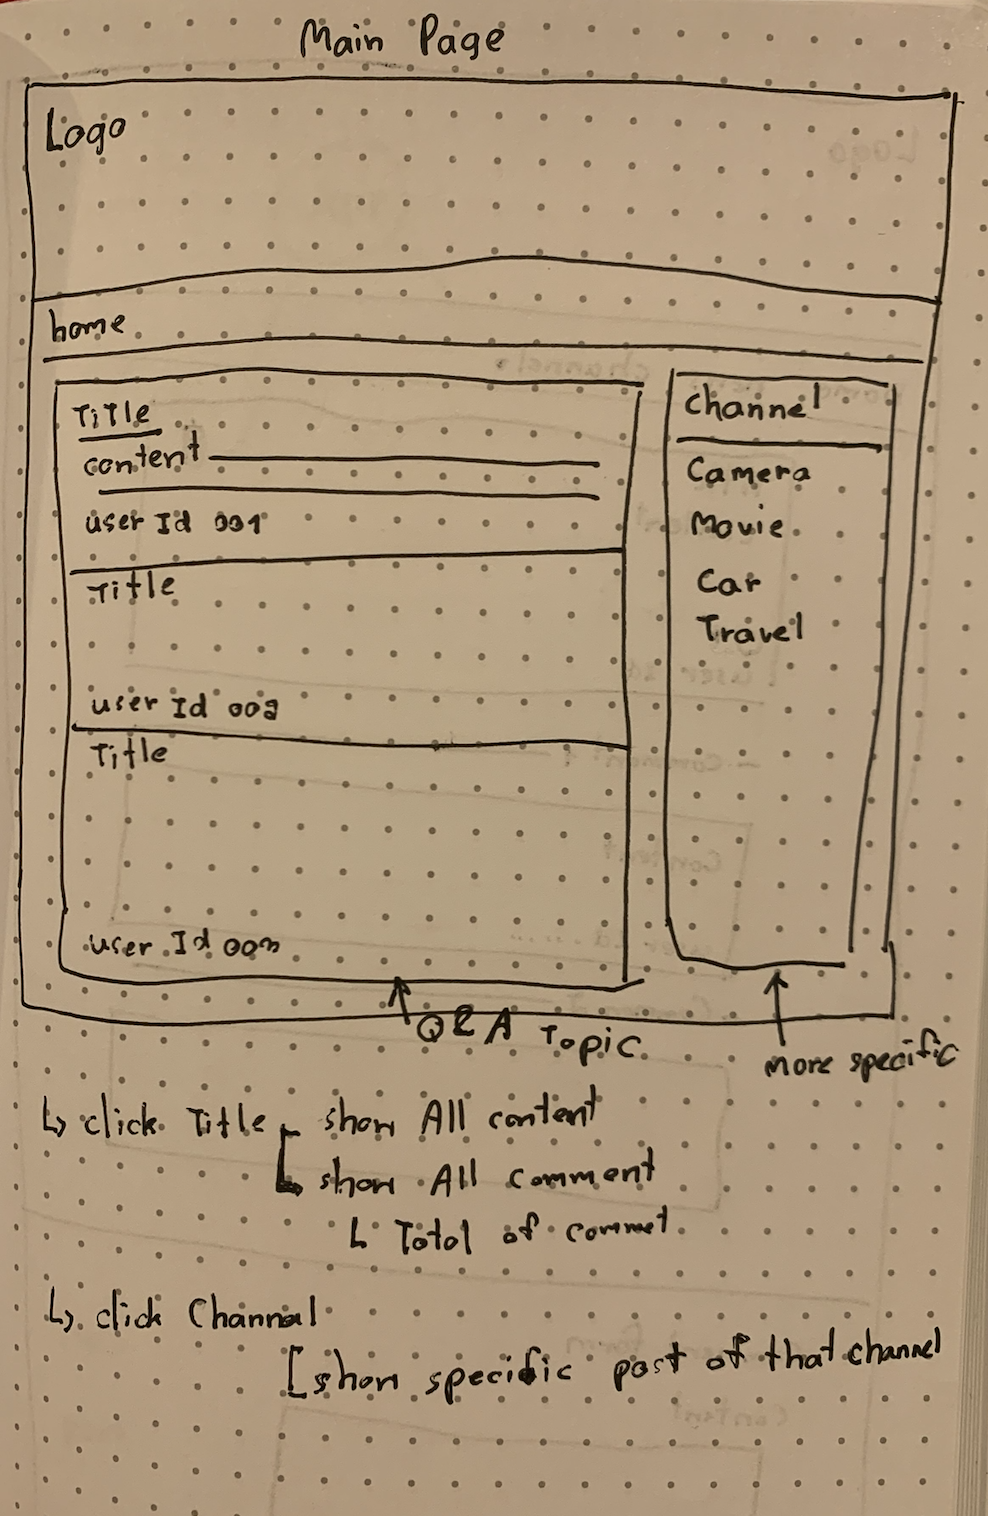 Main Page
Logo
home
Title
content
user Id 001
Title
user Id 002
Title
user Id 003
Channel
Camera
Movie
Car
Travel
Q&A Topic
more specific
↳ click Title show All content
show All comment
↳ Total of commet
↳ click Channal
[show specific post of that channel